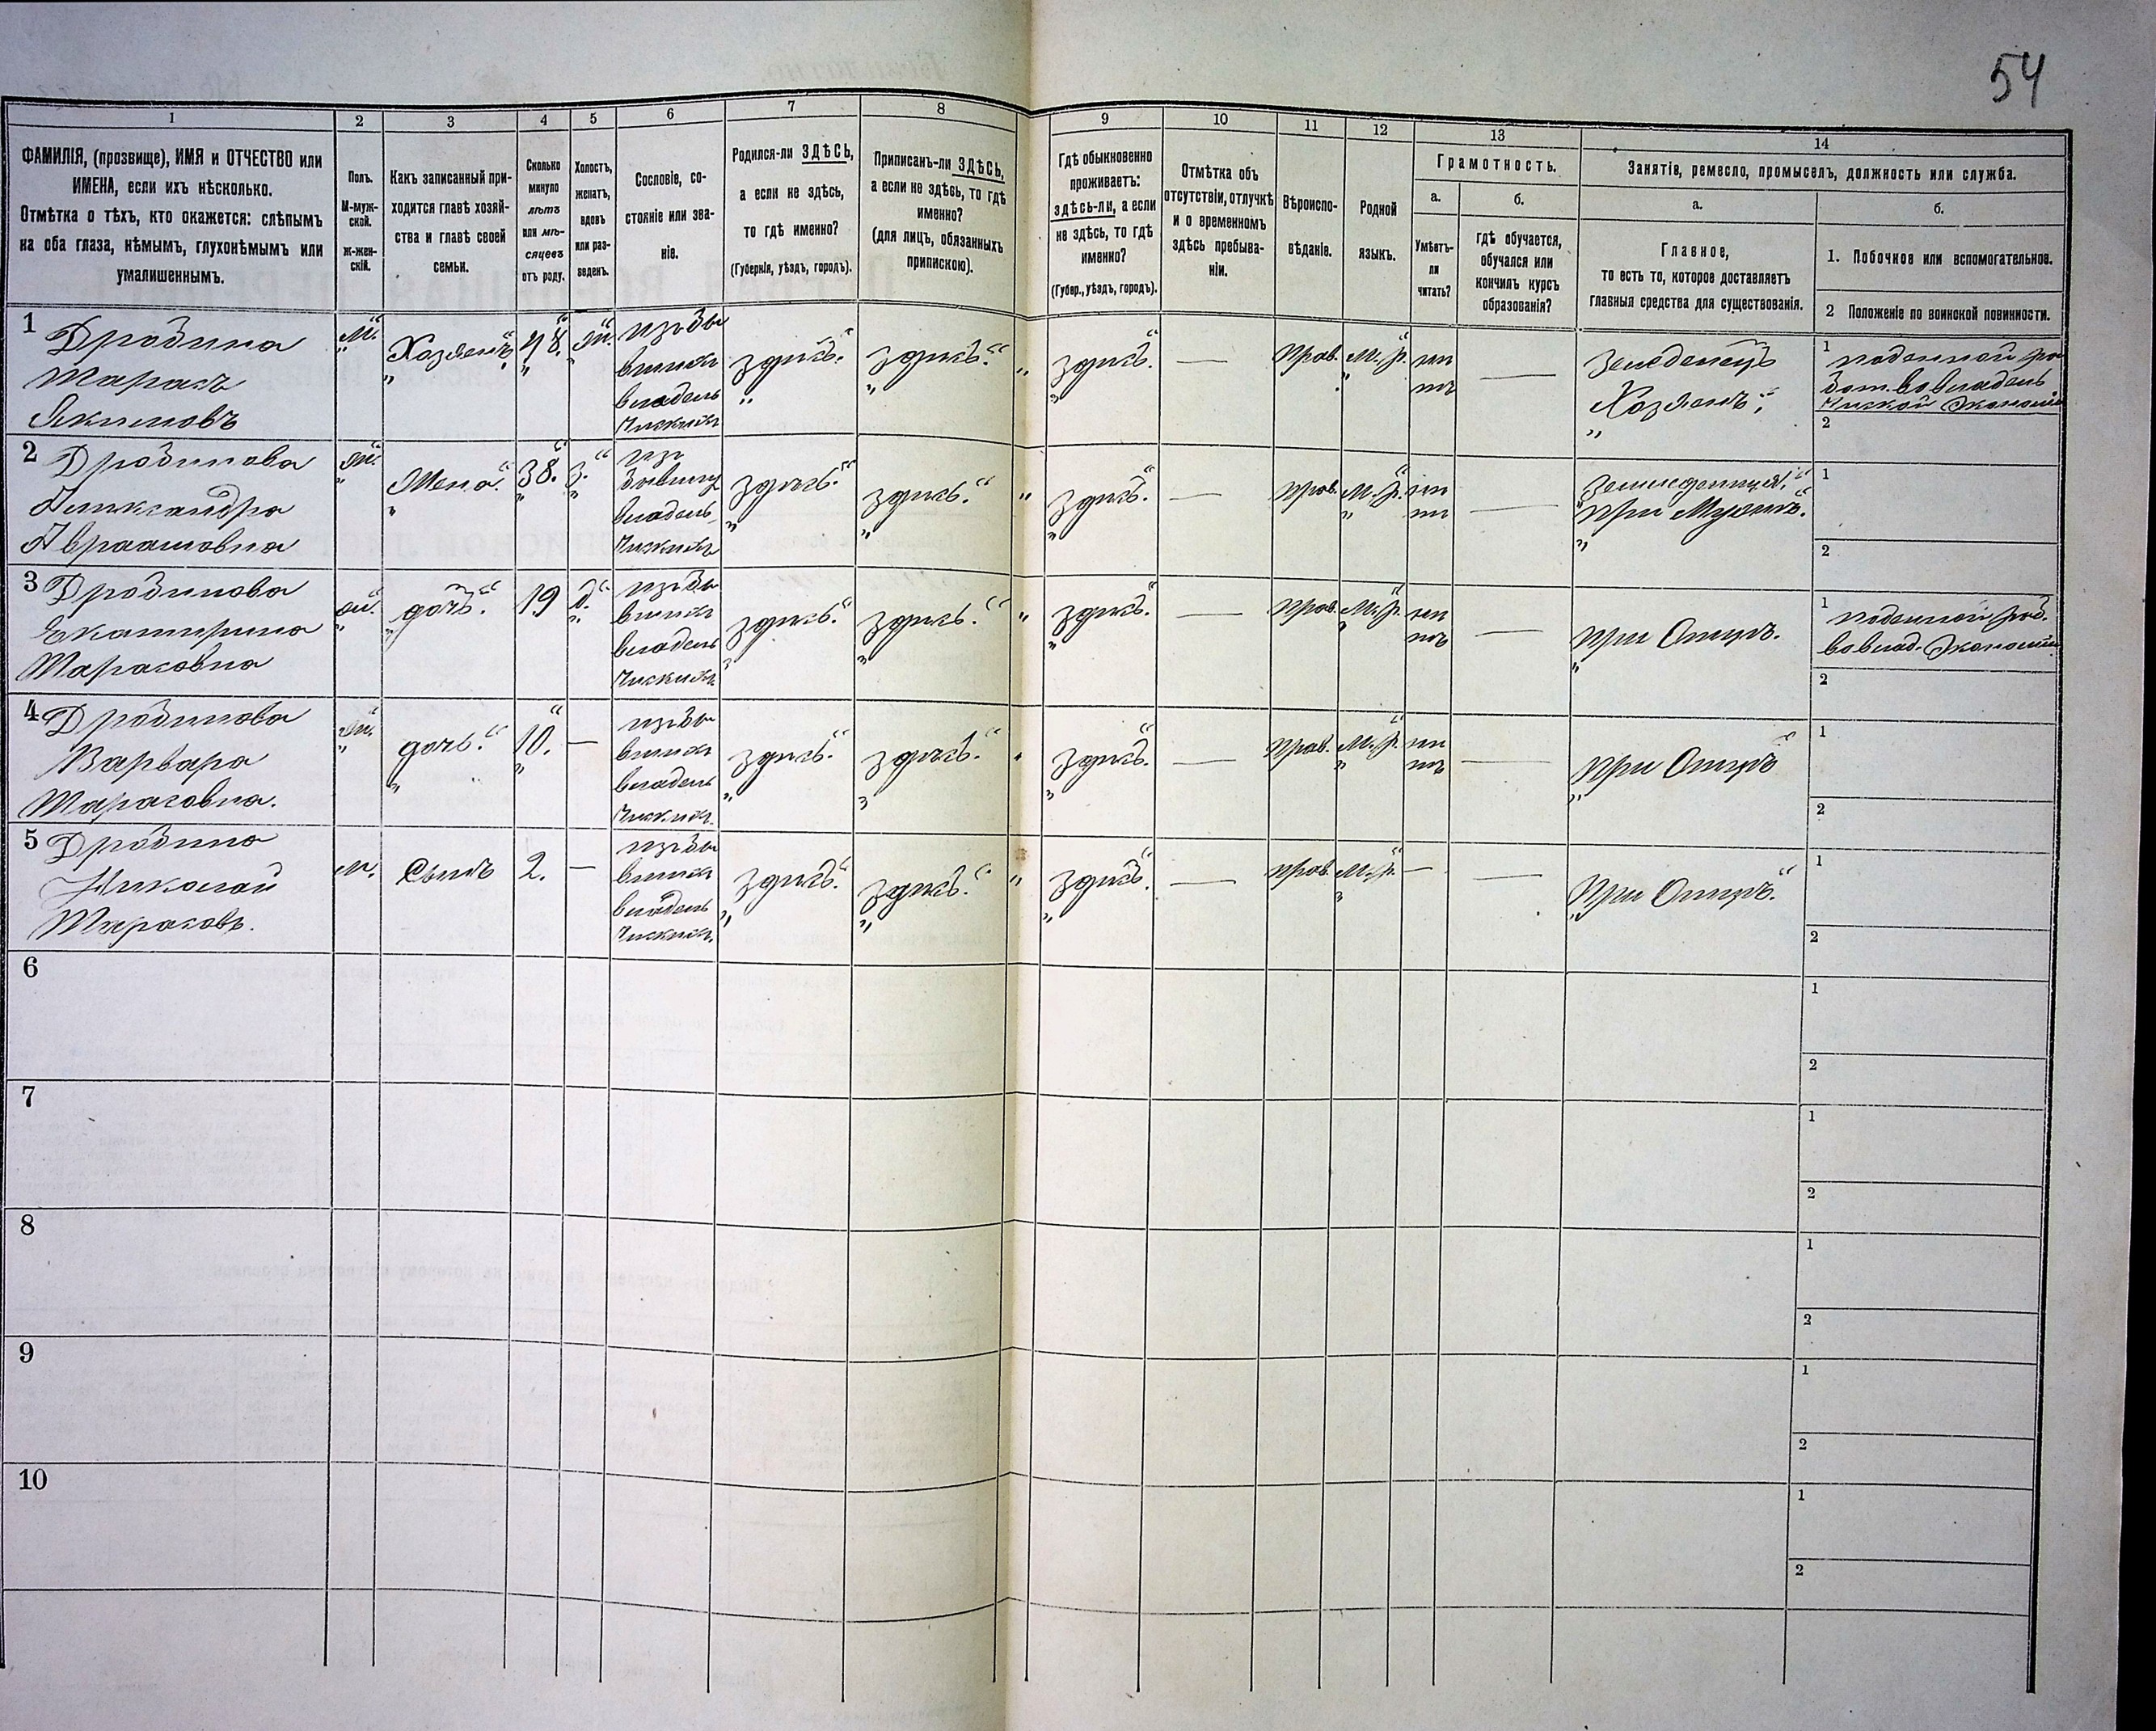 54
1
2
3
4
5
6
7
8
9
10
11
12
13
14
ФАМИЛІЯ, (прозвище), ИМЯ и ОТЧЕСТВО или
ИМЕНА, если ихъ нѣсколько.
Отмѣтка о тѣхъ, кто окажется: слѣпымъ
на оба глаза, нѣмымъ, глухонѣмымъ или
умалишеннымъ.
Полъ.
М-муж-
ской.
Ж-жен-
скій.
Какъ записанный при-
ходится главѣ хозяй-
ства и главѣ своей
семьи.
Сколько
минуло
лѣтъ
или мѣ-
сяцевъ
отъ роду.
Холостъ,
женатъ,
вдовъ
или раз-
веденъ.
Сословіе, со-
стояніе или зва-
ніе.
Родился-ли ЗДѢСЬ,
а если не здѣсь,
то гдѣ именно?
(Губернія, уѣздъ, городъ).
Приписанъ-ли ЗДѢСЬ,
а если не здѣсь, то гдѣ
именно?
(для лицъ, обязанныхъ
припискою).
Гдѣ обыкновенно
проживаетъ:
здѣсь-ли, а если
не здѣсь, то гдѣ
именно?
(Губер., уѣздъ, городъ).
Отмѣтка объ
отсутствіи, отлучкѣ
и о временномъ
здѣсь пребыва-
ніи.
Вѣроиспо-
вѣданіе.
Родной
языкъ.
Грамотность.
а.
Умѣетъ-
ли
читать?
б.
гдѣ обучается,
обучался или
кончилъ курсъ
образованія?
Занятіе, ремесло, промыселъ, должность или служба.
а.
Главное,
то есть то, которое доставляетъ
главныя средства для существованія.
б.
1. Побочное или вспомогательное.
2 Положеніе по воинской повинности.
1
Дробина
Тарасъ
Якимовъ
М.
Хозяенъ
48.
Ж.
изъ бы
вшихъ
владель
ческихъ
здесь.
здесь.
здесь.
—
Прав.
М.р.
не
тъ
—
Земеделецъ
Хозяенъ
1
поденной ра
бот. вовладель
ческой Экономіи
2
2
Дробинова
Александра
Авраамовна
Ж.
Жена.
38.
З.
изъ
бывшихъ
владель
ческихъ
здесь.
здесь.
здесь.
—
Прав.
М.р.
не
тъ
—
при Мужѣ.
1
2
3
Дробинова
Екатерина
Тарасовна
Ж.
дочь.
19
Д.
изъ бы
вшихъ
владель
ческихъ
здесь.
здесь.
здесь.
—
Прав.
М.р.
не
тъ
—
при Отцѣ.
1
поденной раб.
вовлад. Экономіи
2
4
Дробинова
Варвара
Тарасовна.
Ж.
дочь.
10.
—
изъ бы
вшихъ
владель
ческихъ
здесь.
здесь.
здесь.
—
Прав.
М.р.
не
тъ
—
при Отцѣ
1
2
5
Дробина
Николай
Тарасовъ.
М.
Сынъ
2.
—
изъ бы
вшихъ
владель
ческихъ
здесь.
здесь.
здесь.
—
Прав.
М.р.
—
—
При Отцѣ.
1
2
6
1
2
7
1
2
8
1
2
9
1
2
10
1
2